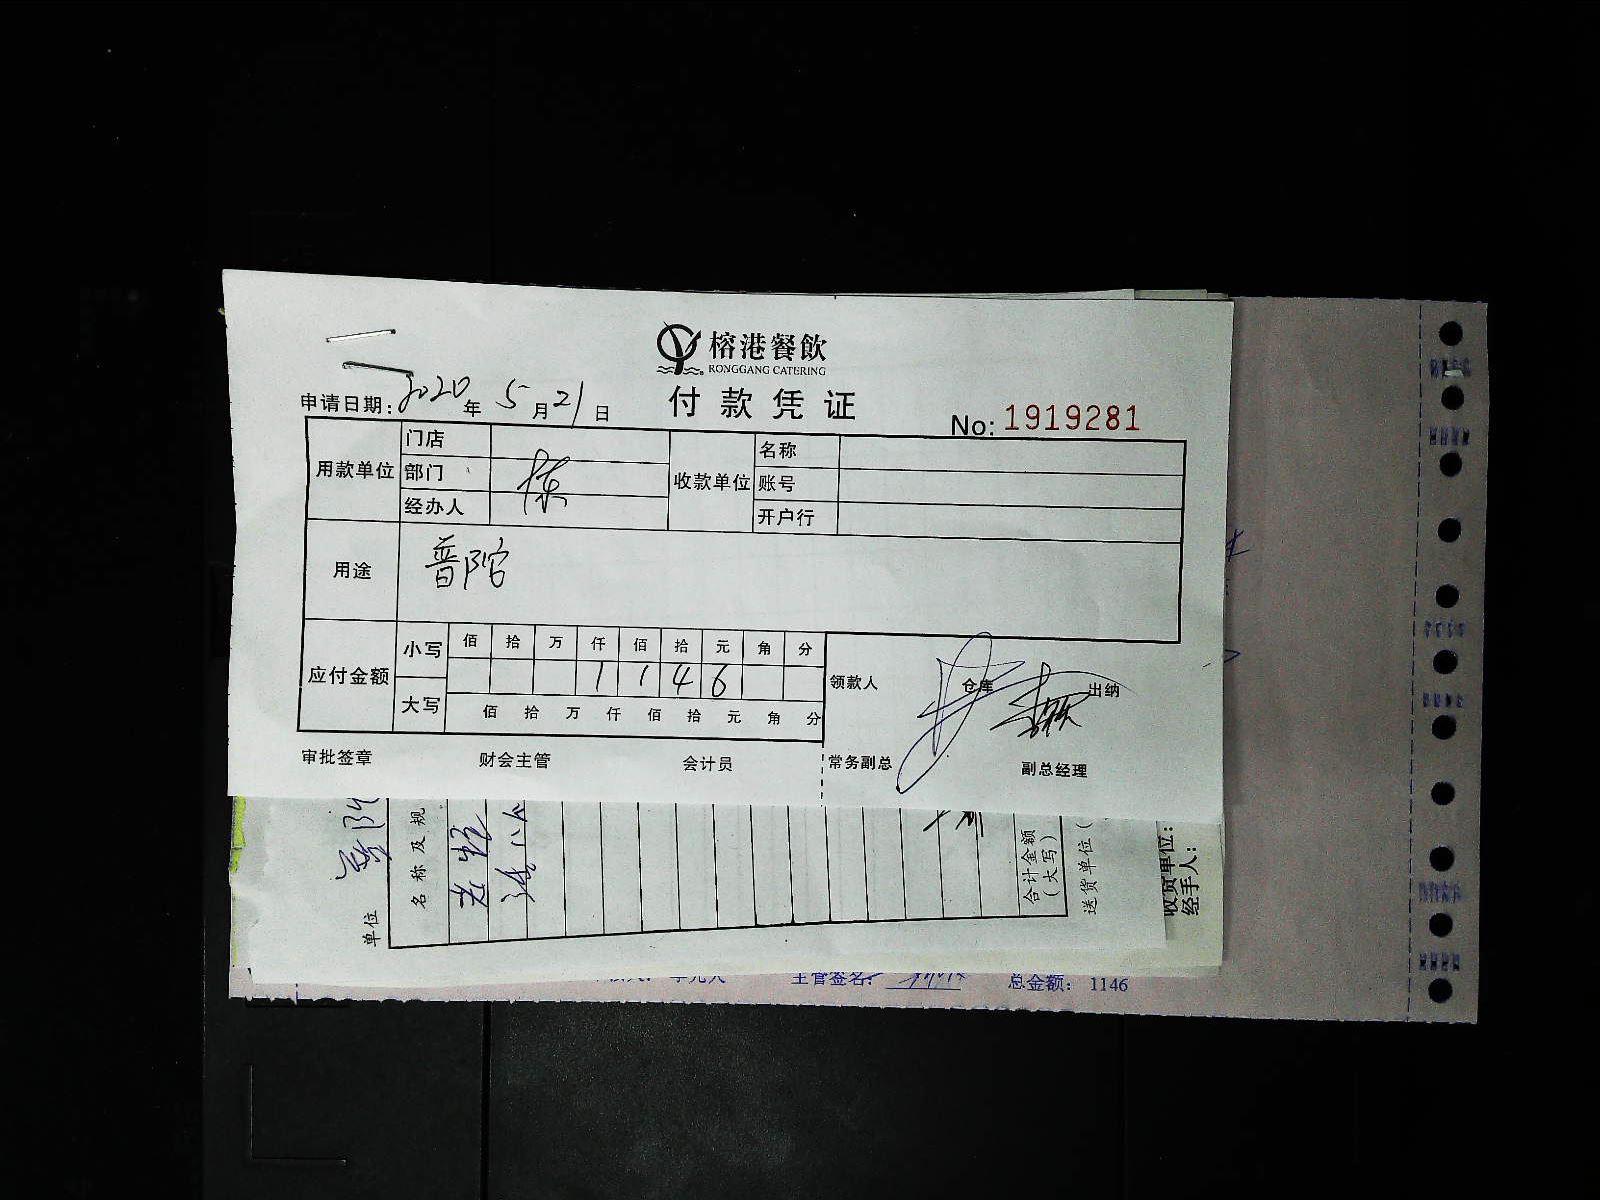 榕港餐飲
RONGGANG CATERING
付款凭证
申请日期: 2020年 5月21日
No: 1919281
用款单位 门店 收款单位 名称
部门 账号
经办人 开户行
用途 普陀
应付金额 小写 佰 拾 万 仟 佰 拾 元 角 分
1 1 4 6
大写 佰 拾 万 仟 佰 拾 元 角 分
领款人 仓库 出纳
审批签章 财会主管 会计员 常务副总 副总经理
单位
名称及规
合计金额
(大写)
送货单位(
收货单位:
经手人:
主管签名: 总金额: 1146